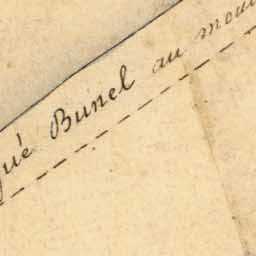 gué Bunel au moul